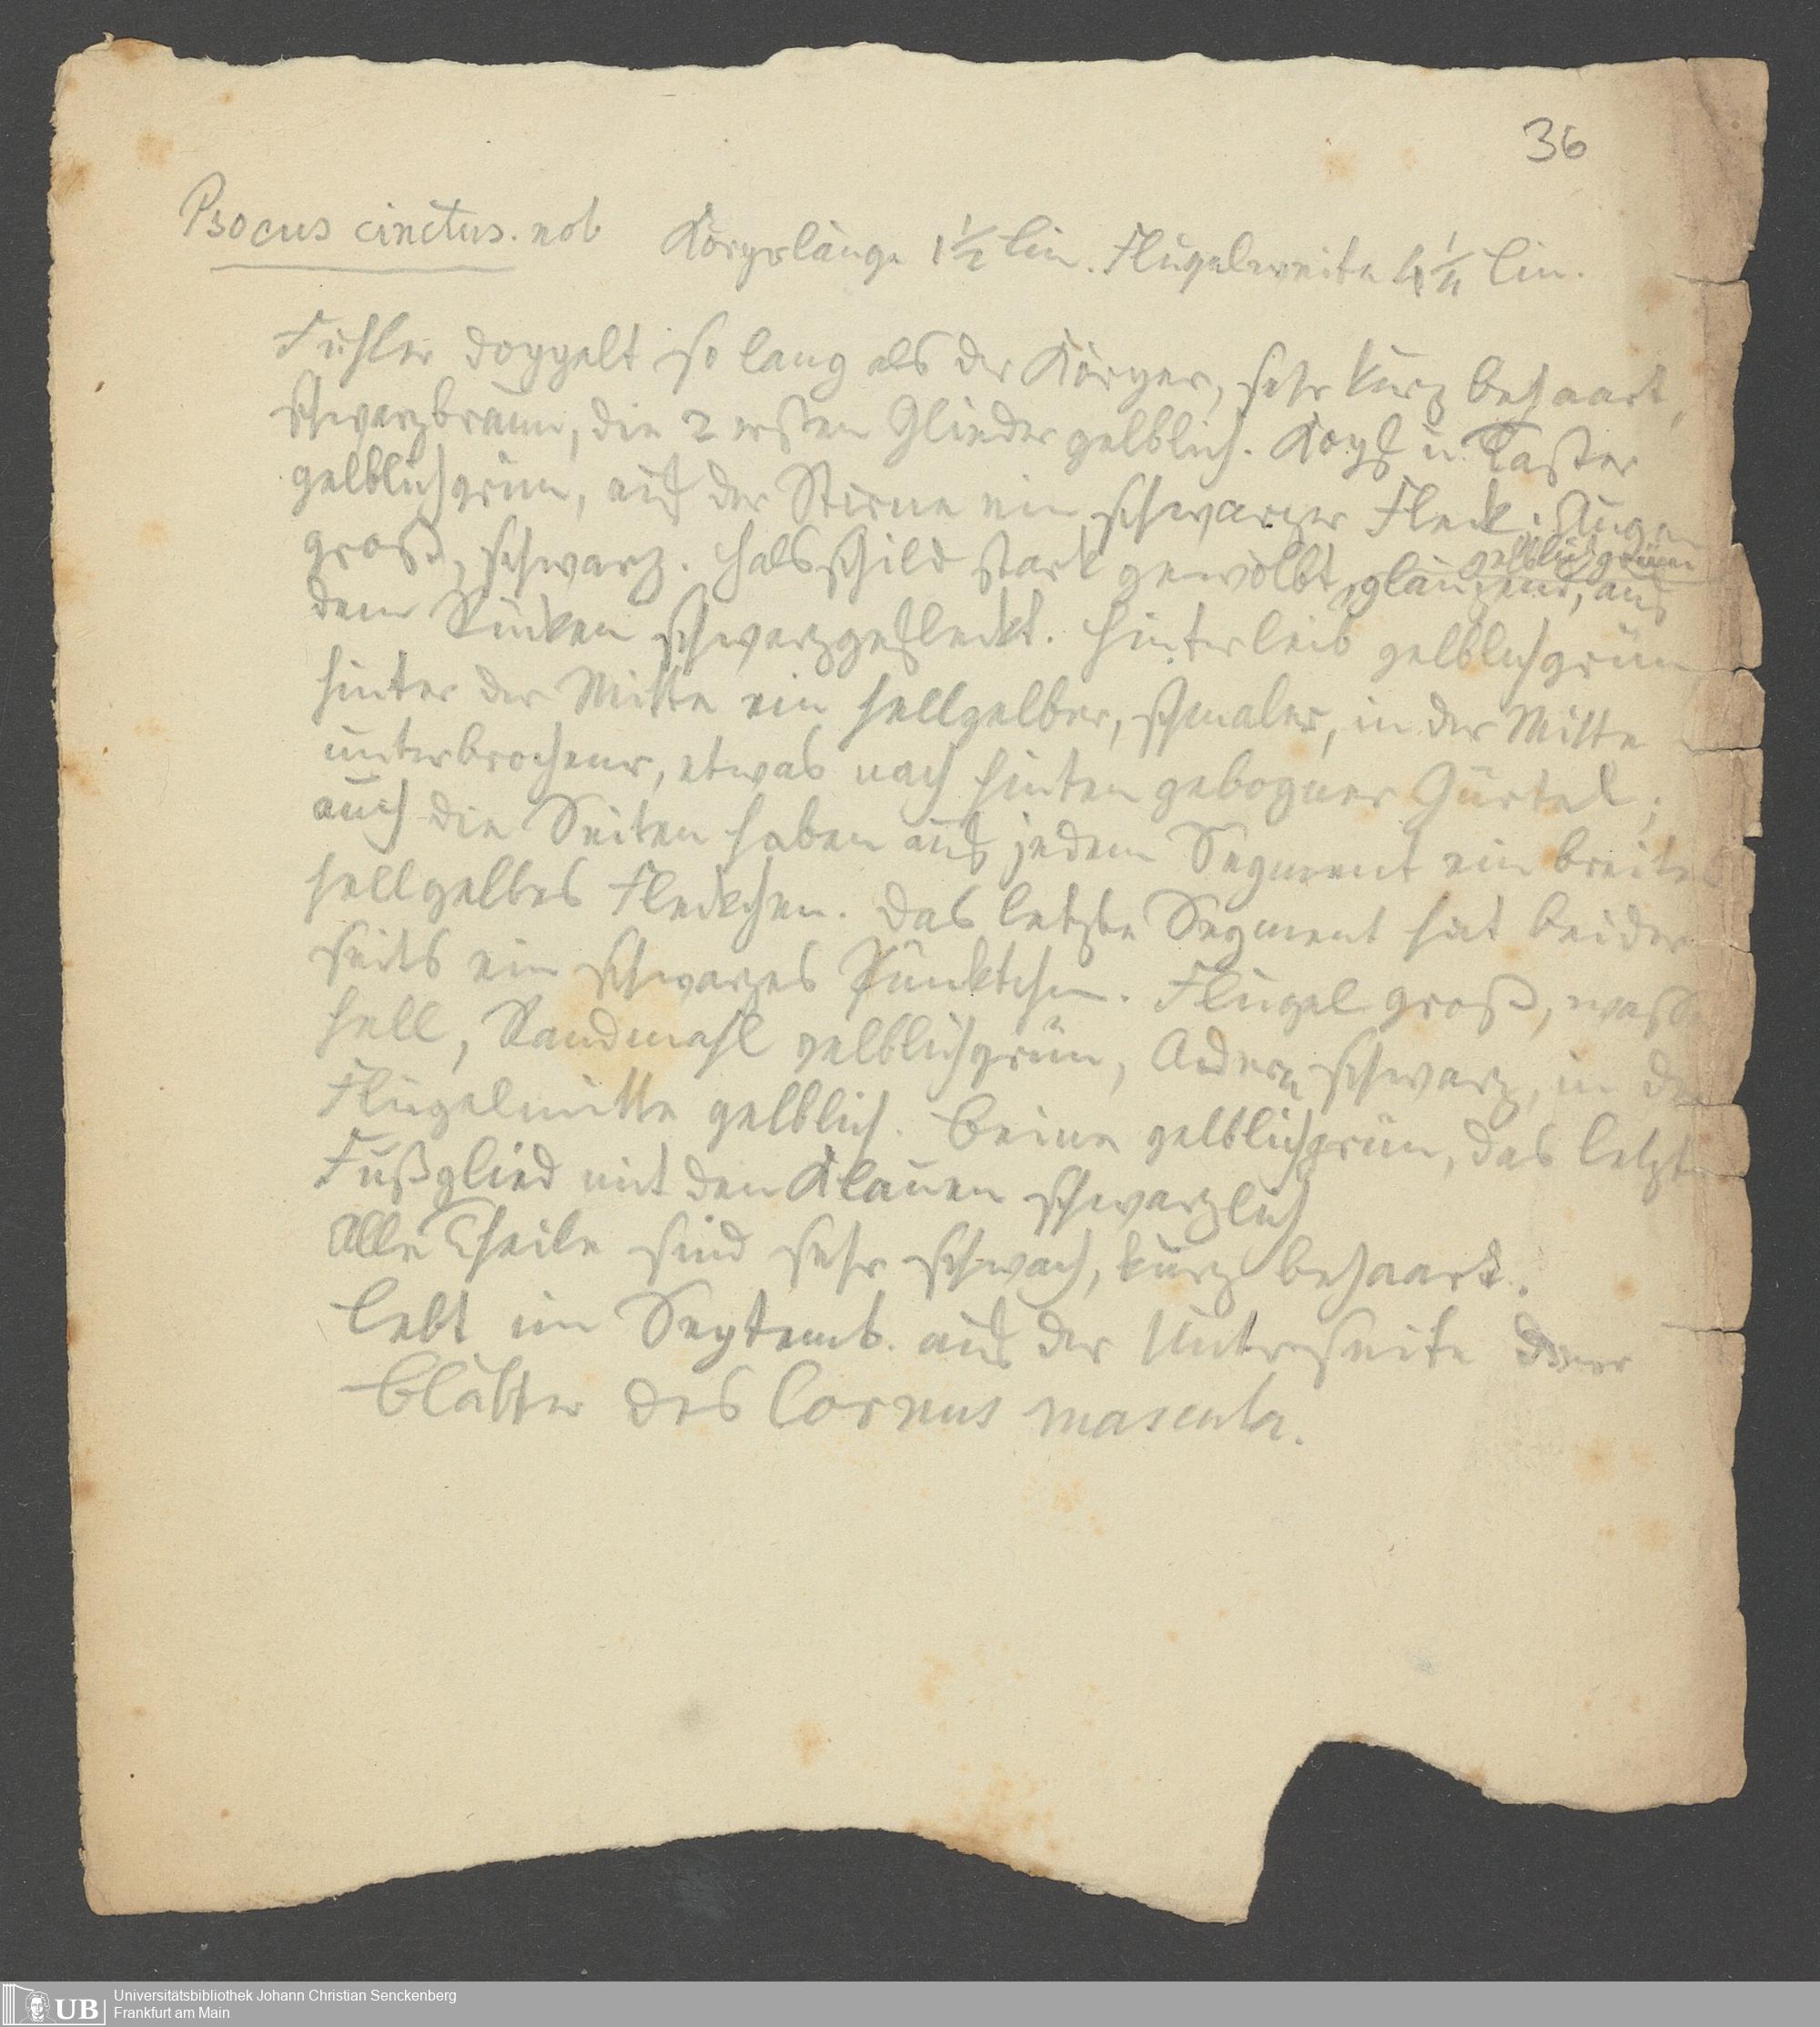 36
Psocus cinctus. nob Körperlänge 1 1/2 lin. Flügelweite 4 1/4 lin.
Fühler doppelt so lang als der Körper, sehr kurz behaart,
schwarzbraun, die 2 ersten Glieder gelblich. Kopf u. Taster
gelblichgrün, auf der Stirne ein schwarzer Fleck. Augen
gelblichgrün
groß, schwarz. Halsschild stark gewölbt, glänzend, auf
dem Rücken schwarzgefleckt. Hinterleib gelblichgrün,
hinter der Mitte ein hellgelber, schmaler, in der Mitte
unterbrochener, etwas nach hinten gebogner Gürtel;
auch die Seiten haben auf jedem Segment ein breites
hellgelbes Fleckchen. Das letzte Segment hat beider
seits ein schwarzes Pünktchen. Flügel groß, wasser
hell, Randmahl gelblichgrün, Adern schwarz, in der
Flügelmitte gelblich. Beine gelblichgrün, das letzte
Fußglied mit den Klauen schwarzlich
Alle Theile sind sehr schwach, kurz behaart.
Lebt im Septemb. auf der Unterseite
Blätter des Cornus mascula.
Universitätsbibliothek Johann Christian Senckenberg
UB Frankfurt am Main